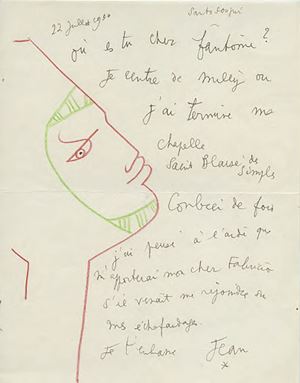 22 Juillet 19
Santo Sospir
où es tu cher fantôme?
Je rentre de Milly où
j'ai terminé ma
chapelle
Saint Blaise des
Simples
Combien de fois
j'ai pensé à l'aide que
m'apporterai mon cher Fabrizio
s'il venait me rejoindre sur
mes échafaudages.
Je t'embrasse Jean
*